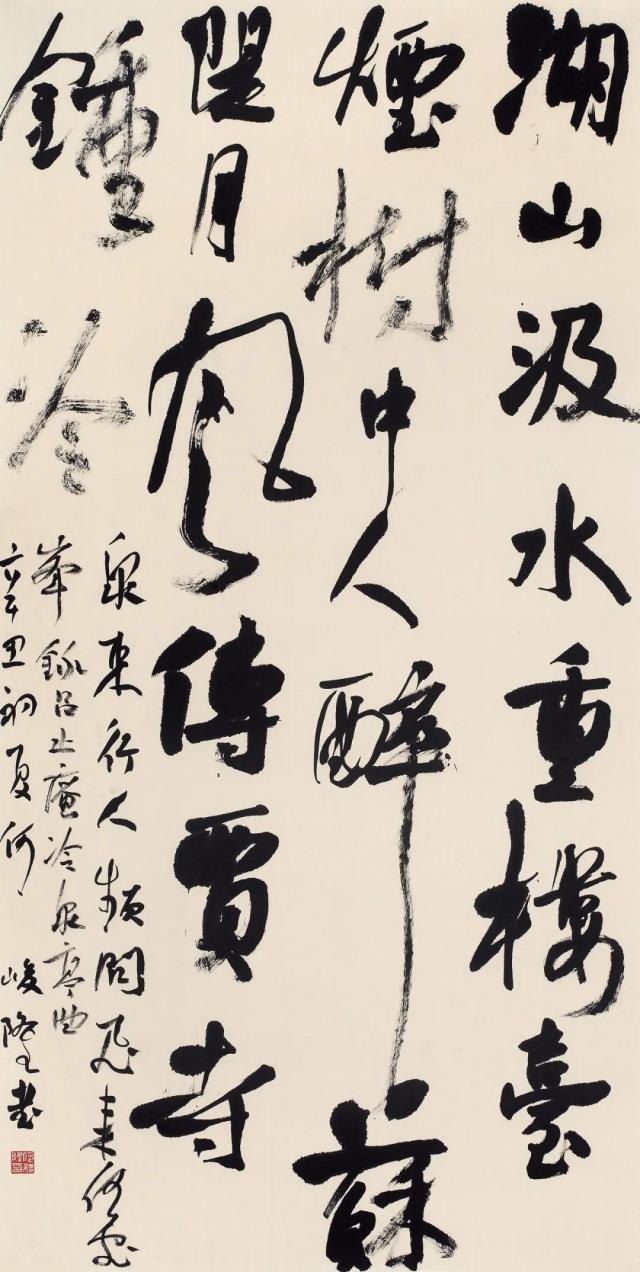 湖山汲水重樓臺
煙樹中人醉蘇
隄月風傳賈寺
鍾冷
泉東行人頻問飛來何處
峯 錄呂止庵冷泉亭曲
辛丑初夏何峻隆書